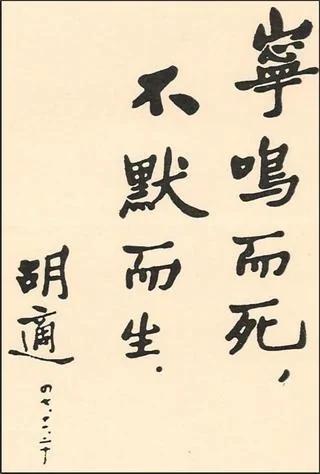 寧鳴而死，
不默而生.
胡適